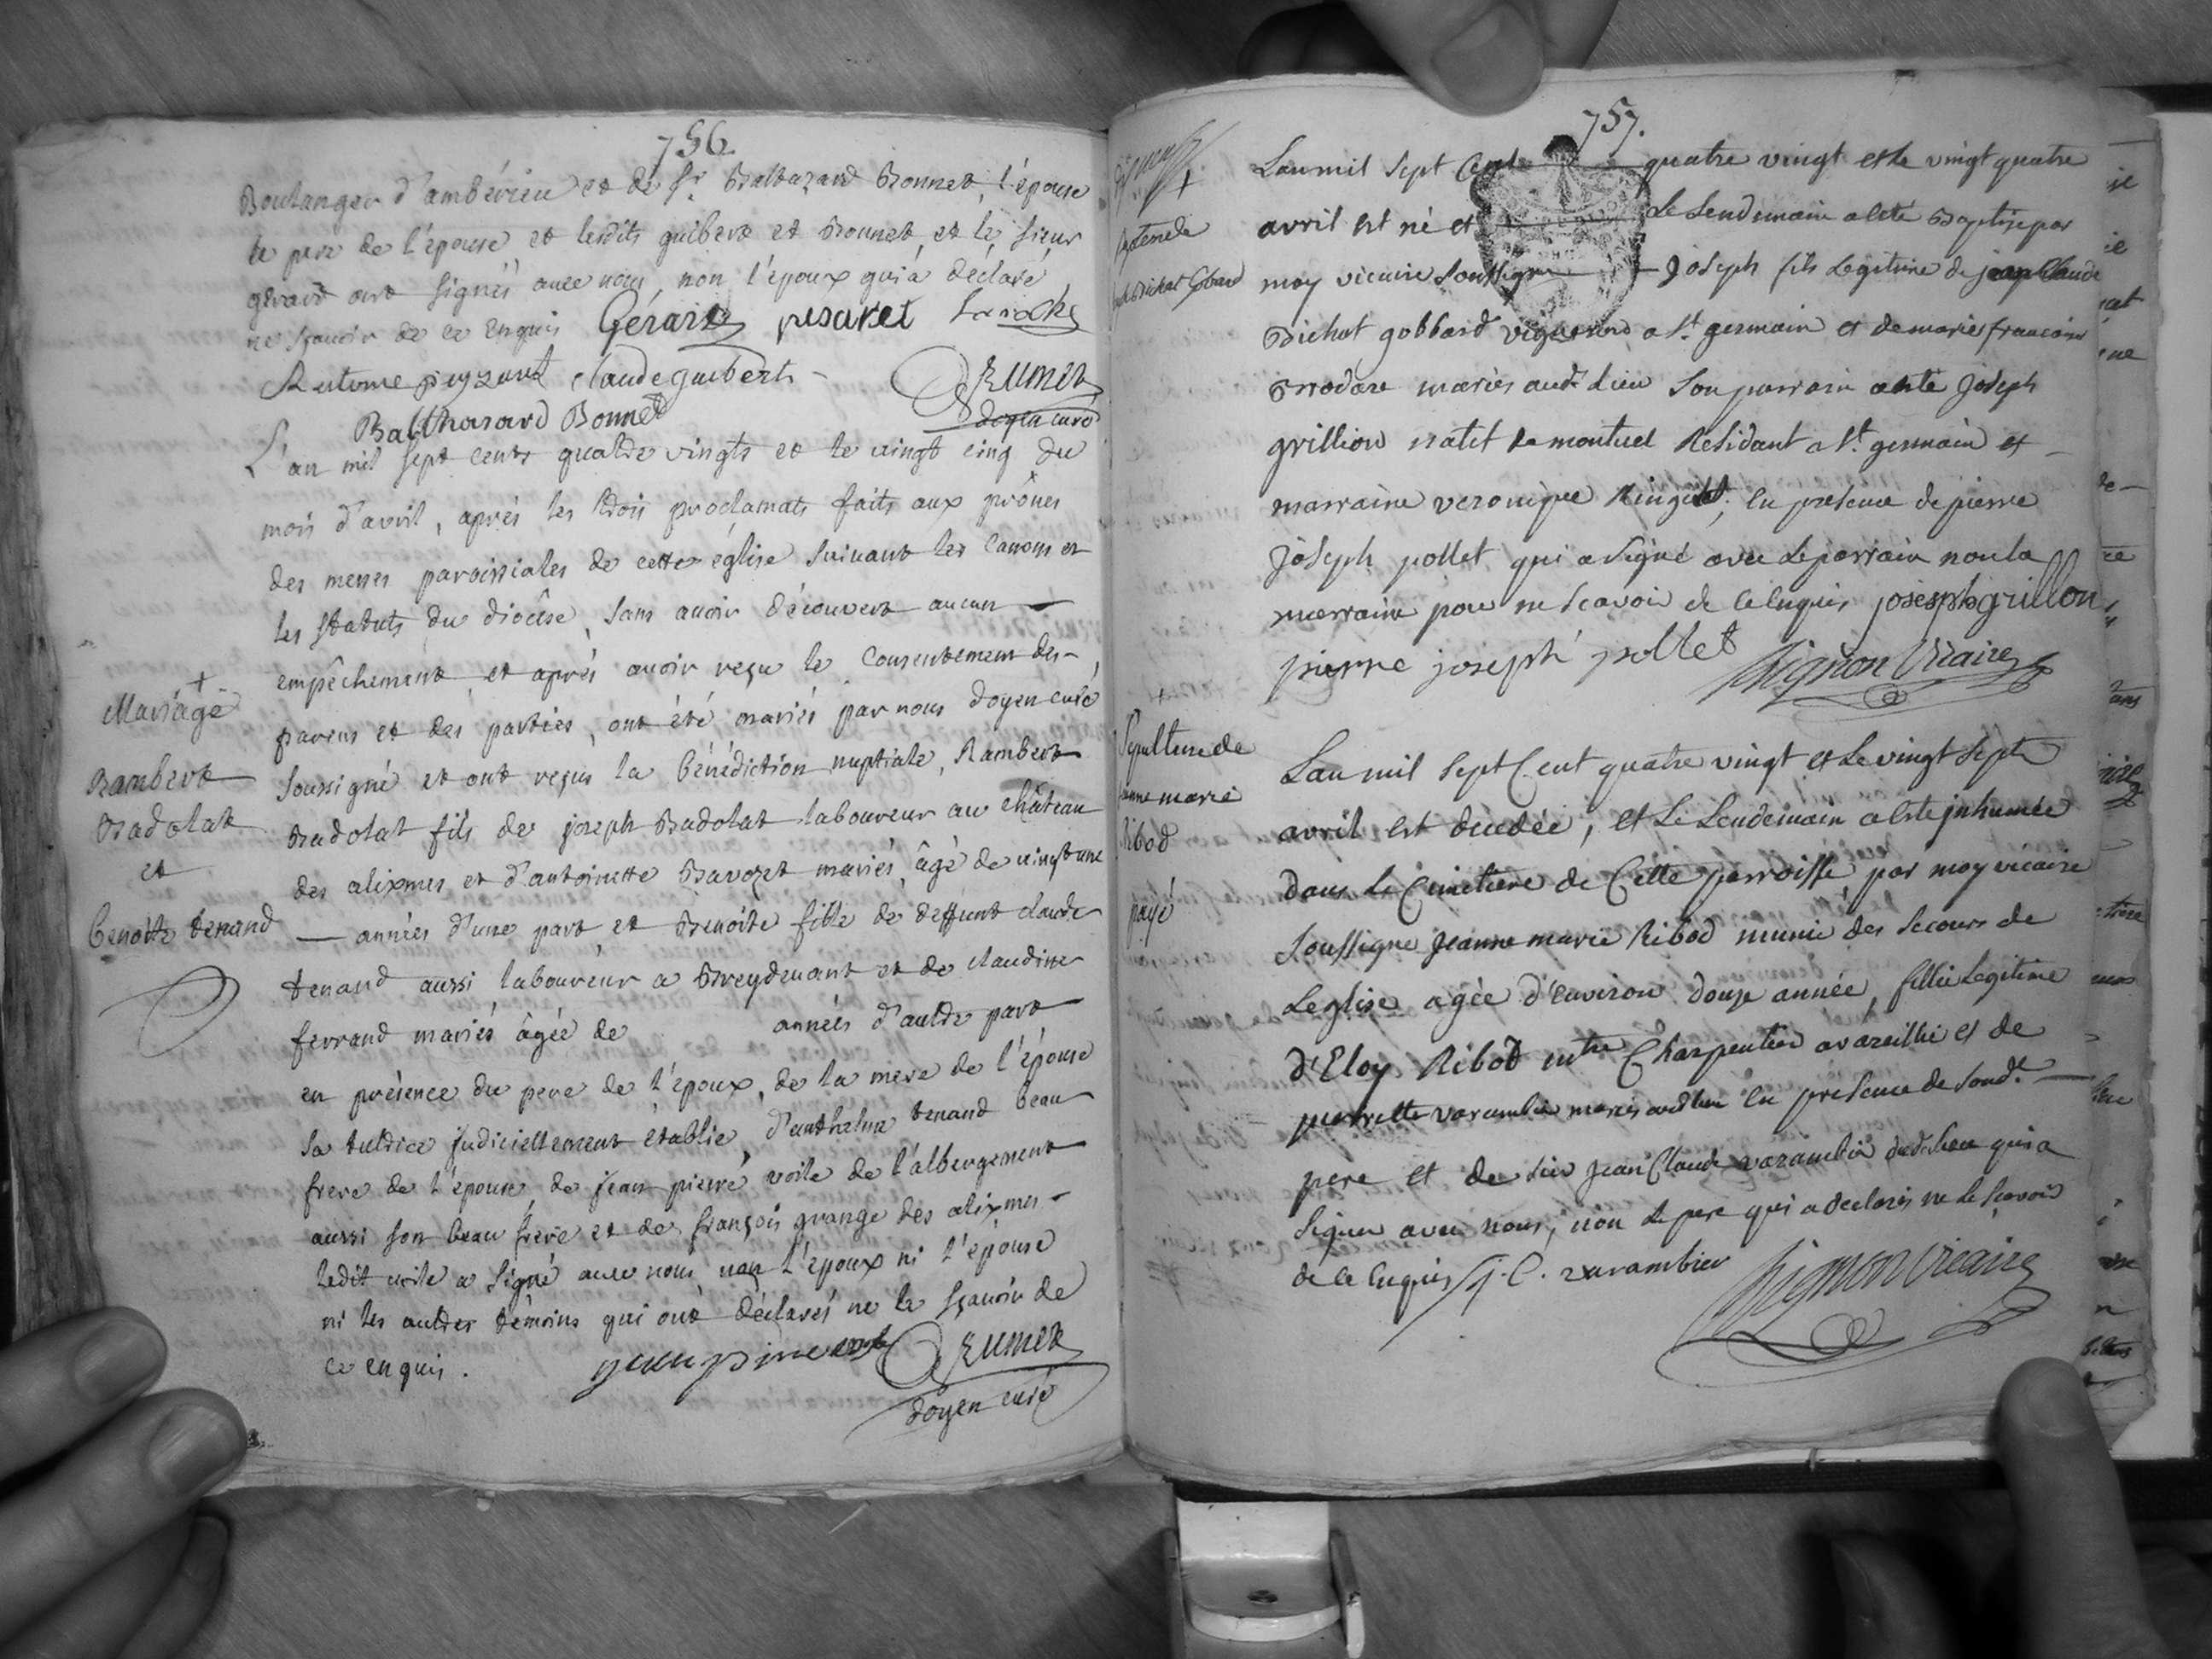 756
Boulanger d'ambérieu et de Sr Baltazard Bonnet, l'épouse
le pere de l'épouse et lesdits guibert et Bonnet, et le sieur
gérard ont signés avec nous, non l'époux qui a déclaré
ne sçavoir de ce enquis Gérard pesaret
claude guibert
Balthasard Bonnet doyen curé
L'an mil sept cents quatre vingts et le vingt cinq du
mois d'avril, après les trois proclamats faits aux prônes
des messes paroissiales de cette église suivant les canons et
les statuts du diocèse, sans avoir découvert aucun
empêchement et après avoir reçu le consentement des
parens et des parties, ont été mariés par nous doyen curé
soussigné et ont reçus la bénédiction nuptiale, Rambert
Badolat fils de joseph Badolat laboureur au château
des alixmes et d'antoinette Bavozet mariés, âgé de vingt une
années d'une part, et Benoite fille de deffunt claude
tenand aussi laboureur a Breydevant et de claudine
ferrand mariés âgée de années d'autre part
en présence du pere de l'époux, de la mere de l'épouse
sa tutrice judiciellement établie, d'anthelme tenand beau
frere de l'épouse, de jean pierre voile de l'albergement
aussi son beau frere et de françois grange des alixmes
ledit voile a signé avec nous non l'époux ni l'épouse
ni les autres témoins qui ont déclarés ne le sçavoir de
ce enquis.
doyen curé
+
Mariage
Rambert
Badolat
et
benoite tenand
757.
L'an mil sept cent quatre vingt et le vingt quatre
avril est né et Le Lendemain a été Baptisé par
moy vicaire soussigné Joseph fils Legitime de jean Claude
Bichat gobbard vigneron a St germain et de marie francoise
Brodare mariés audt Lieu son parrain a été Joseph
grillion natif de montuel Residant a St germain et
marraine veronique Ringuet, en presence de pierre
Joseph pollet qui a signé avec Le parrain non la
marraine pour ne scavoir de ce enquis josesph grillon
pierre joseph pollet Mignon Vicaire
Sepulture de
jeanne marie
Ribod
payé
L'an mil sept Cent quatre vingt et Le vingt sept
avril est decedée, et Le Lendemain a été inhumée
dans Le Cimetiere de Cette parroisse par moy vicaire
soussigné Jeanne marie Ribod munie des secours de
Leglise agée d'environ douze année, fillie Legitime
d'Eloy Ribod mtre Charpentier a vareillie et de
pierrette varambier mariés audt lieu en presence de sondt
pere et de sieur Jean Claude varambier dudt lieu qui a
signer avec nous, non Le pere qui a declarés ne Le scavoir
de ce enquis j. C. varambier Mignon Vicaire